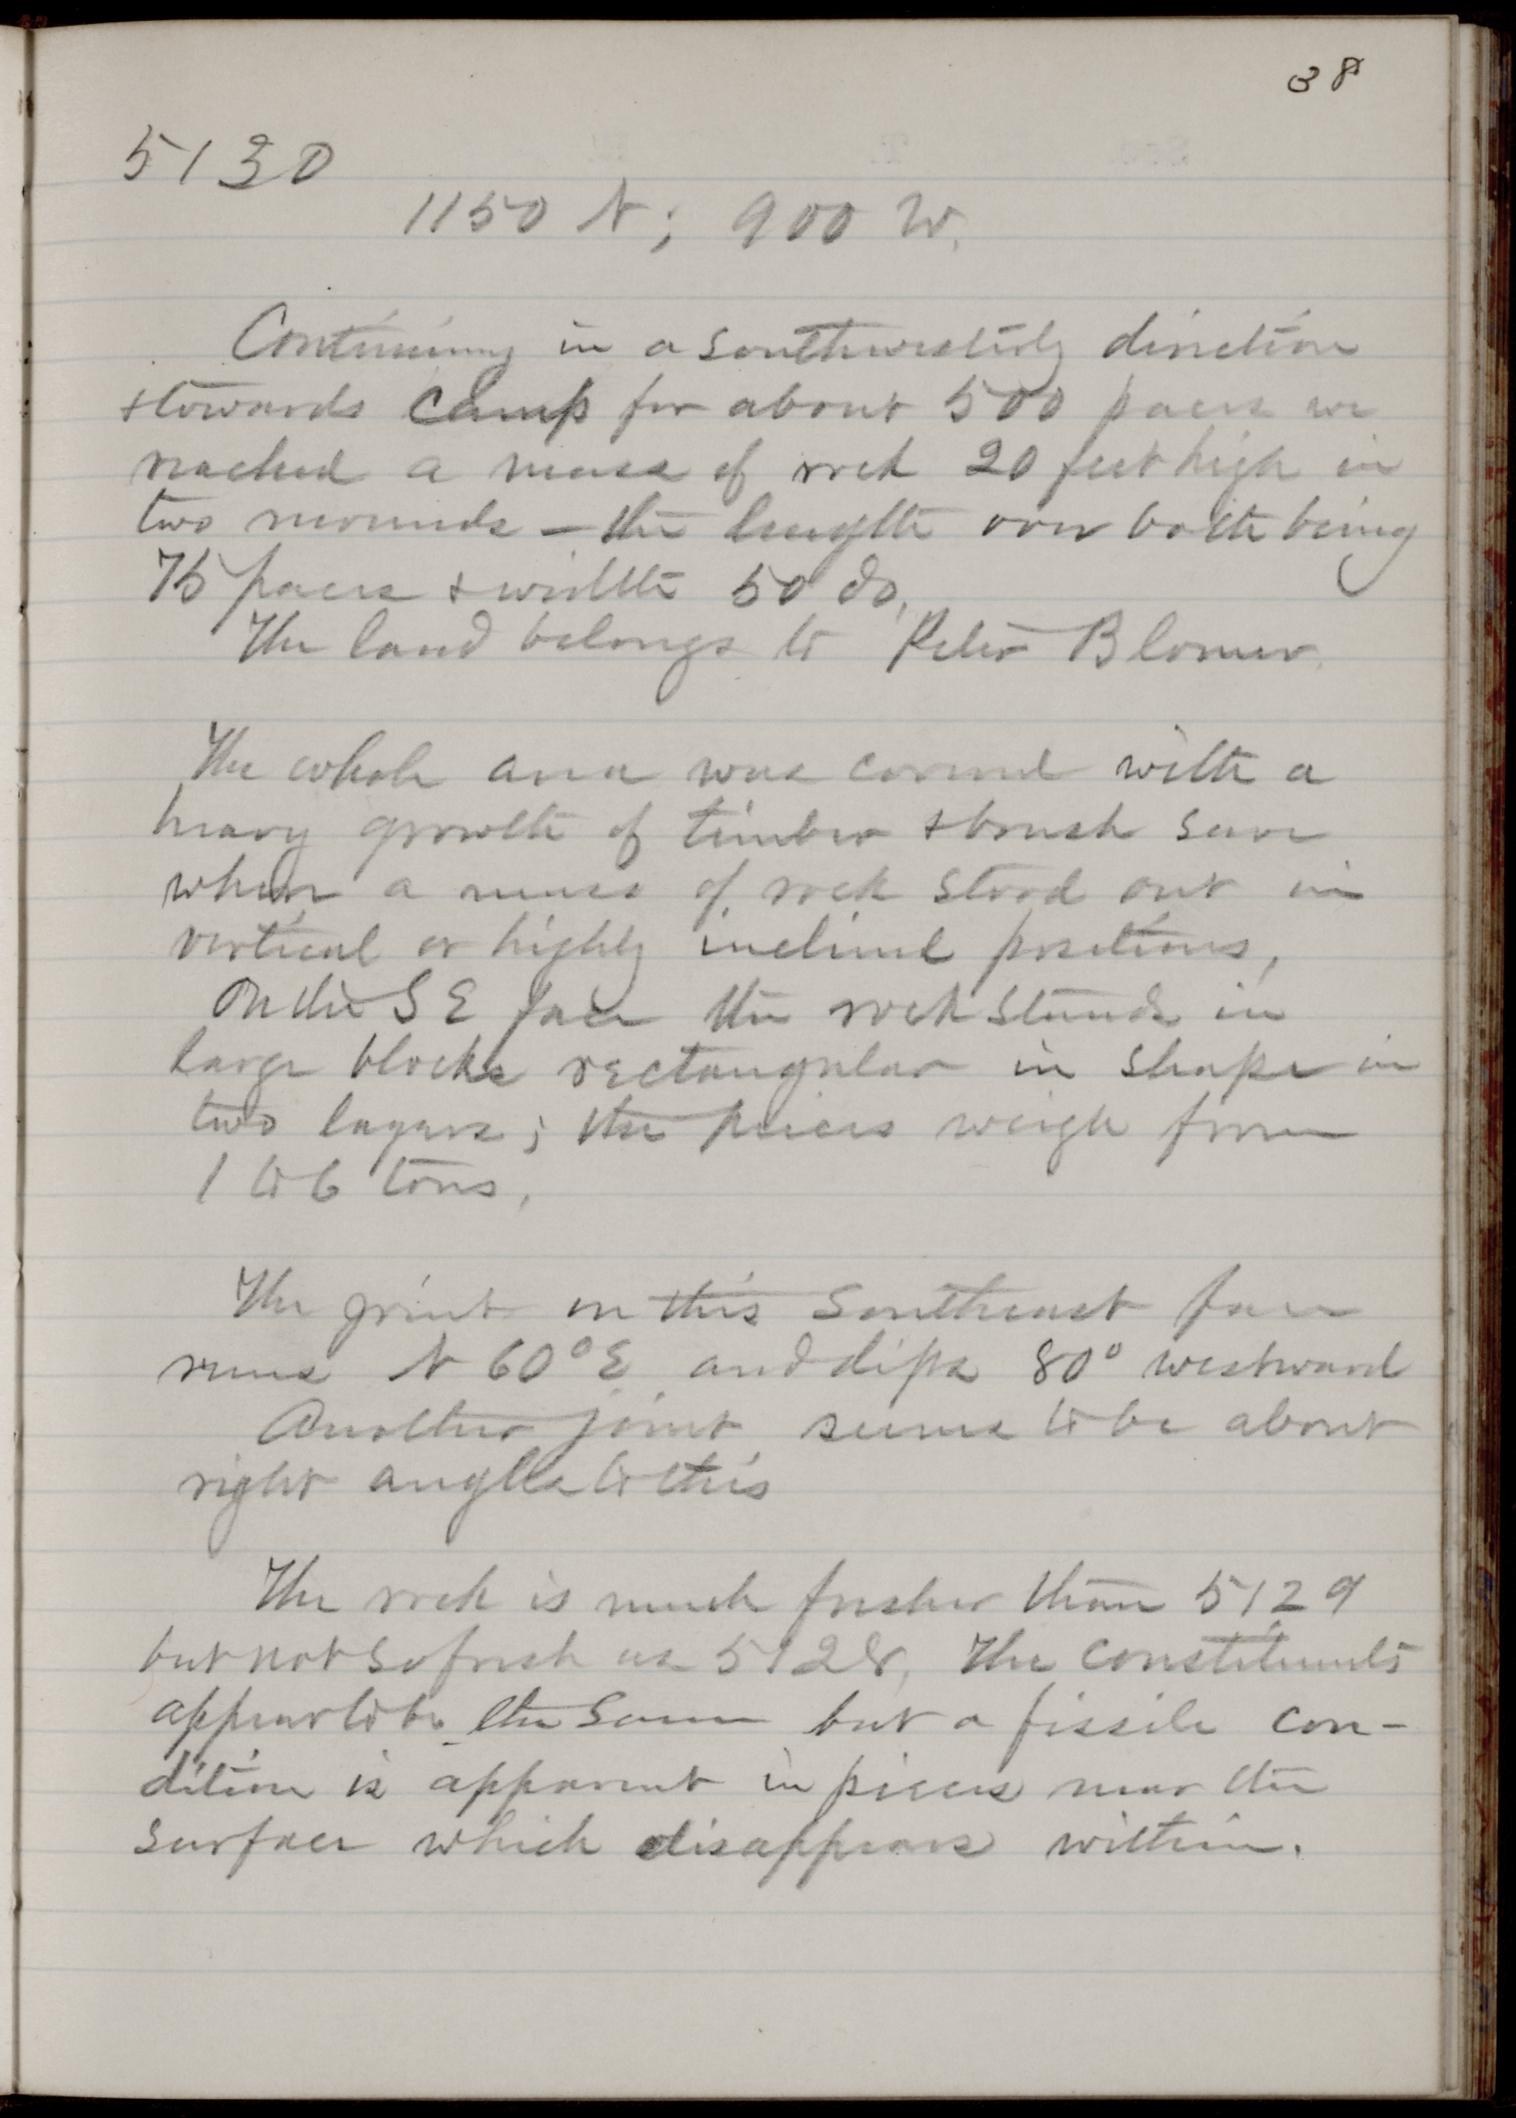 38
5130
1150 N; 900 W.
Continuing in a southwesterly direction
+ towards camp for about 500 paces we
reached a mass of rock 20 feet high in
two mounds — the length over both being
75 paces + width 50 do.
The land belongs to Peter Blomer.
The whole area was covered with a
heavy growth of timber + brush save
where a mass of rock stood out in
vertical or highly inclined positions,
On the S E face the rock stands in
large blocks rectangular in shape in
two layers; the pieces weigh from
1 to 6 tons.
The joint on this southeast face
runs N 60° E and dips 80° westward
Another joint seems to be about
right angles to this
The rock is much fresher than 5129
but not so fresh as 5128. The constituents
appear to be the same but a fissile con-
dition is apparent in pieces near the
surface which disappears within.